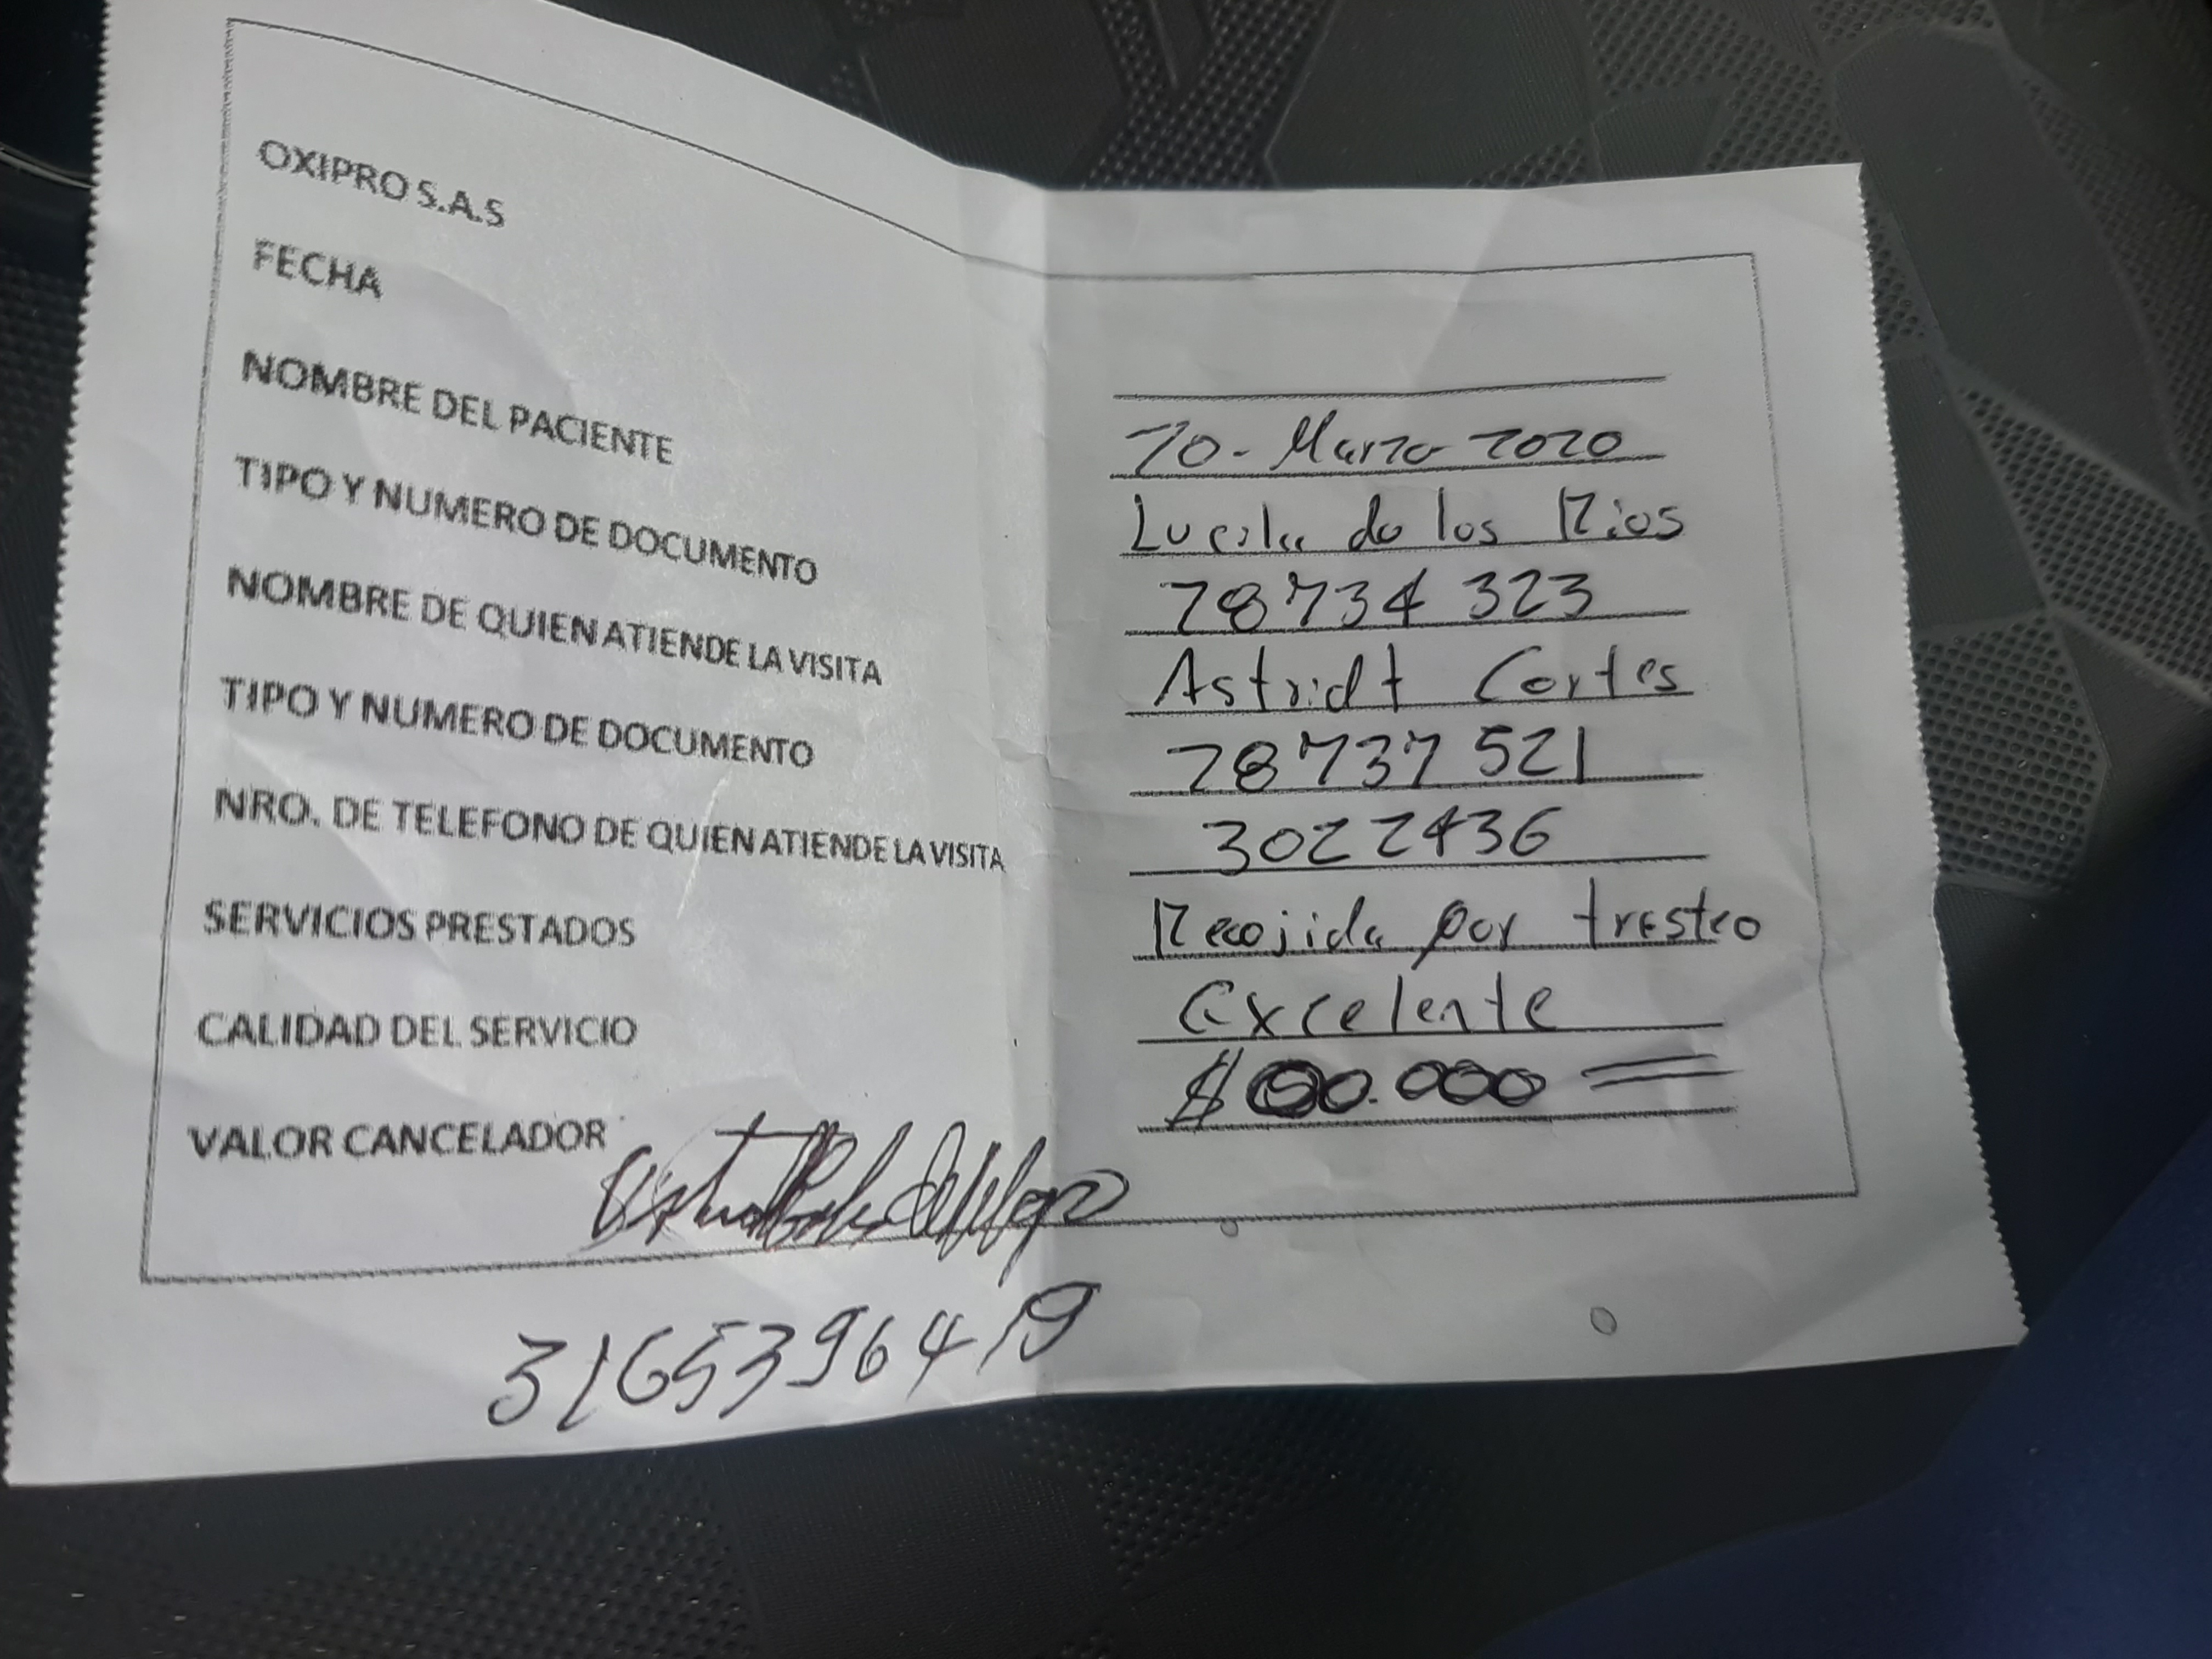 OXIPRO S.A.S
FECHA 20- Marzo 2020
NOMBRE DEL PACIENTE Lucila de los Rios
TIPO Y NUMERO DE DOCUMENTO 28734323
NOMBRE DE QUIEN ATIENDE LA VISITA Astridt Cortes
TIPO Y NUMERO DE DOCUMENTO 28737521
NRO. DE TELEFONO DE QUIEN ATIENDE LA VISITA 3022436
SERVICIOS PRESTADOS Recojida por trasteo
CALIDAD DEL SERVICIO Excelente
VALOR CANCELADOR $ 00.000 =
3165396419